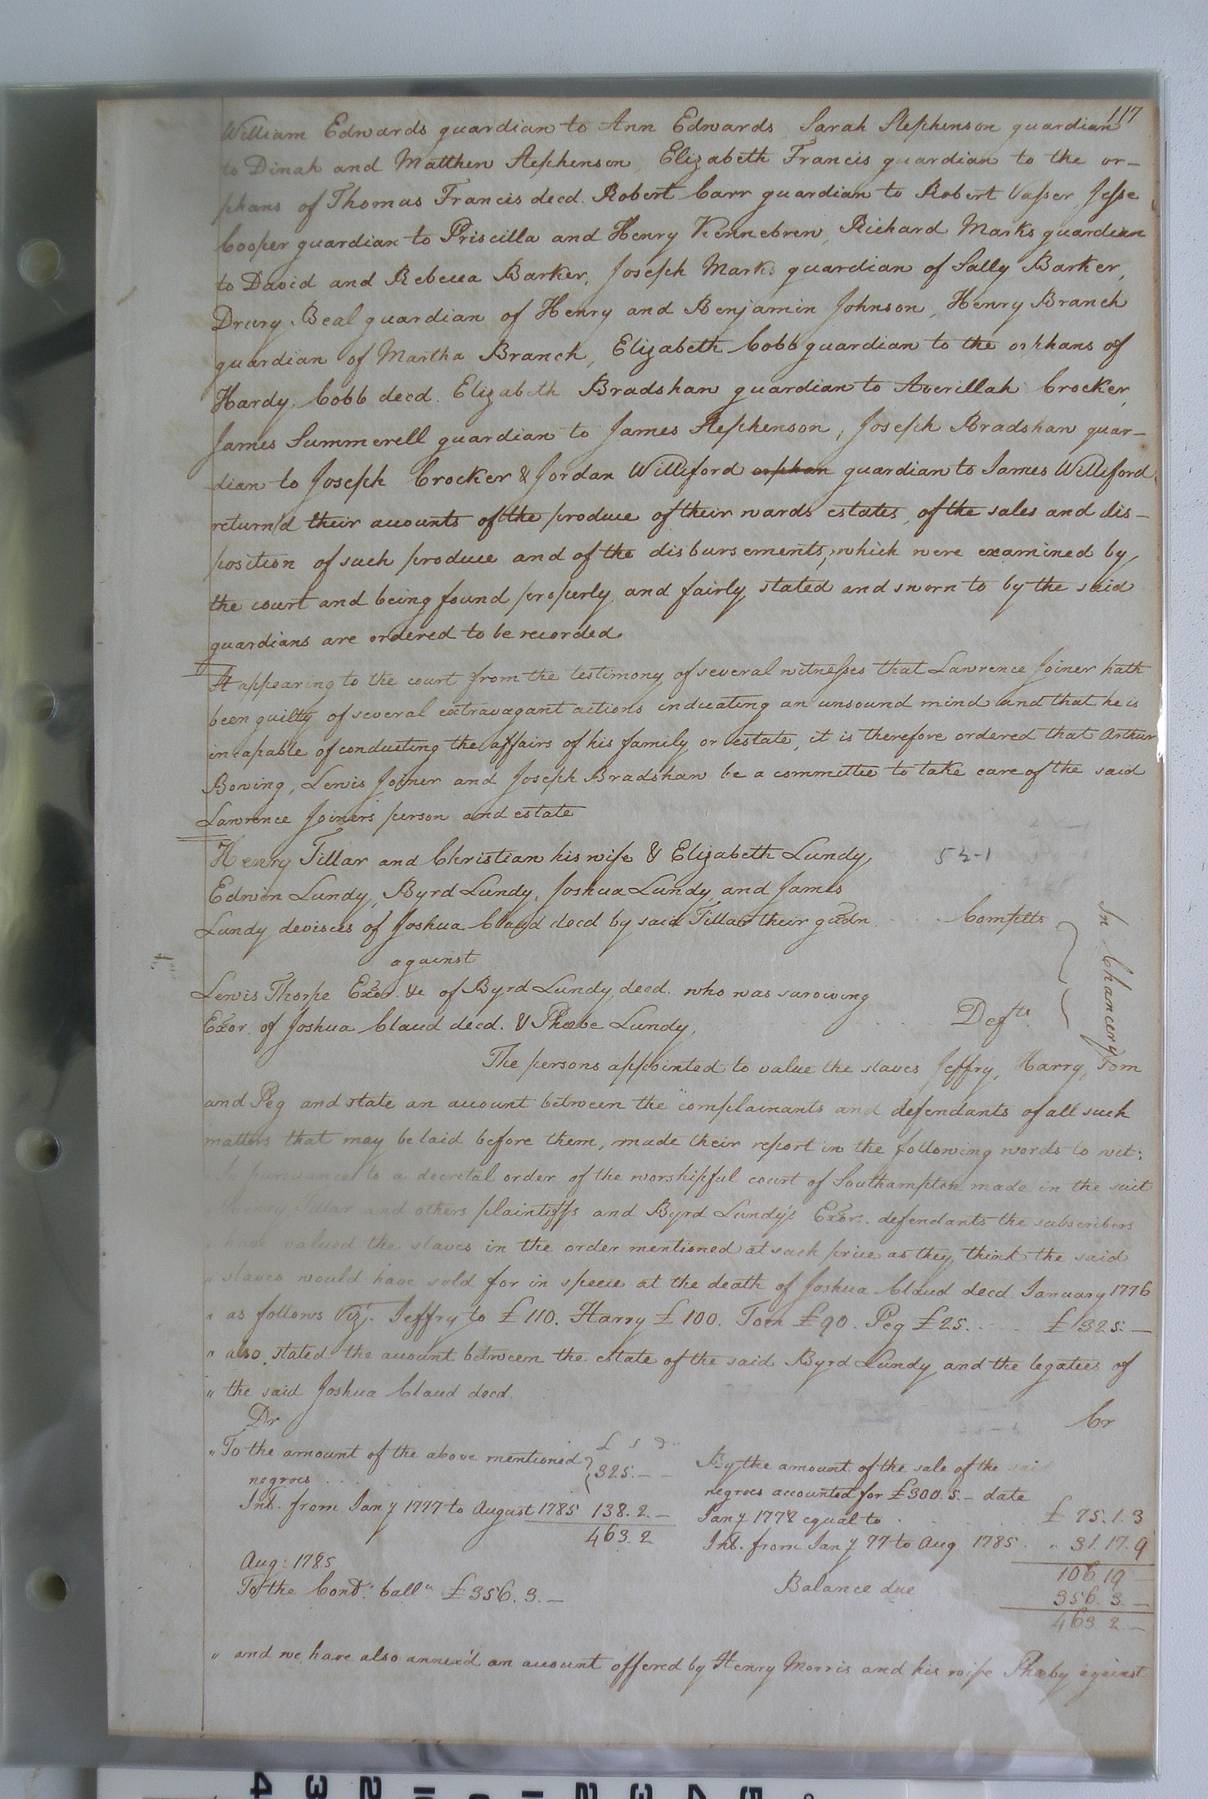 117
William Edwards guardian to Ann Edwards, Sarah Stephenson guardian
to Dinah and Matthew Stephenson, Elizabeth Francis guardian to the or-
phans of Thomas Francis decd. Robert Carr guardian to Robert Vasser, Jesse
Cooper guardian to Priscilla and Henry Kennebrew, Richard Marks guardian
to David and Rebecca Barker, Joseph Marks guardian of Sally Barker,
Drury Beal guardian of Henry and Benjamin Johnson, Henry Branch
guardian of Martha Branch, Elizabeth Cobb guardian to the orphans of
Hardy Cobb decd. Elizabeth Bradshaw guardian to Averillah Crocker,
James Summerell guardian to James Stephenson, Joseph Bradshaw guar-
dian to Joseph Crocker & Jordan Williford orphan guardian to James Williford
return'd their accounts of the produce of their wards estates, of the sales and dis-
position of such produce and of the disbursements, which were examined by
the court and being found properly and fairly stated and sworn to by the said
guardians are ordered to be recorded
It appearing to the court from the testimony of several witnesses that Lawrence Joiner hath
been guilty of several extravagant actions indicating an unsound mind and that he is
incapable of conducting the affairs of his family or estate, it is therefore ordered that Arthur
Bowing, Lewis Joiner and Joseph Bradshaw be a committee to take care of the said
Lawrence Joiner's person and estate
Henry Tillar and Christian his wife & Elizabeth Lundy,
Edwin Lundy, Byrd Lundy, Joshua Lundy and James
Lundy devisees of Joshua Claud decd by said Tillar their gudn. Complts
against
In Chancery
Lewis Thorpe Exor. &c of Byrd Lundy decd. who was surviving
Exor. of Joshua Claud decd. & Phœbe Lundy, Defts.
The persons appointed to value the slaves Jeffry, Harry, Tom
and Peg and state an account between the complainants and defendants of all such
matters that may be laid before them, made their report in the following words to wit:
" In pursuance to a decretal order of the worshipful court of Southampton made in the suit
" Henry Tillar and others plaintiffs and Byrd Lundy's Exor. defendants the subscribers
" have valued the slaves in the order mentioned at such price as they think the said
" slaves would have sold for in specie at the death of Joshua Claud decd January 1776
" as follows Viz. Jeffry to £110. Harry £100. Tom £90. Peg £25. £325.—
" also stated the account between the estate of the said Byrd Lundy and the legatees of
" the said Joshua Claud decd.
Dr Cr
£ s d
" To the amount of the above mentioned
negroes 325.—
Int. from Jany 1777 to August 1785 138.2.—
463.2
Aug: 1785
To the Contr. ball. £356.3.—
By the amount of the sale of the said
negroes accounted for £300.5.— date
Jany 1778 equal to £75.1.3
Int. from Jany 77 to Aug 1785. " 31.17.9
106.19
Balance due 356.3.—
463.2—
" and we have also annex'd an account offered by Henry Morris and his wife Phœby against